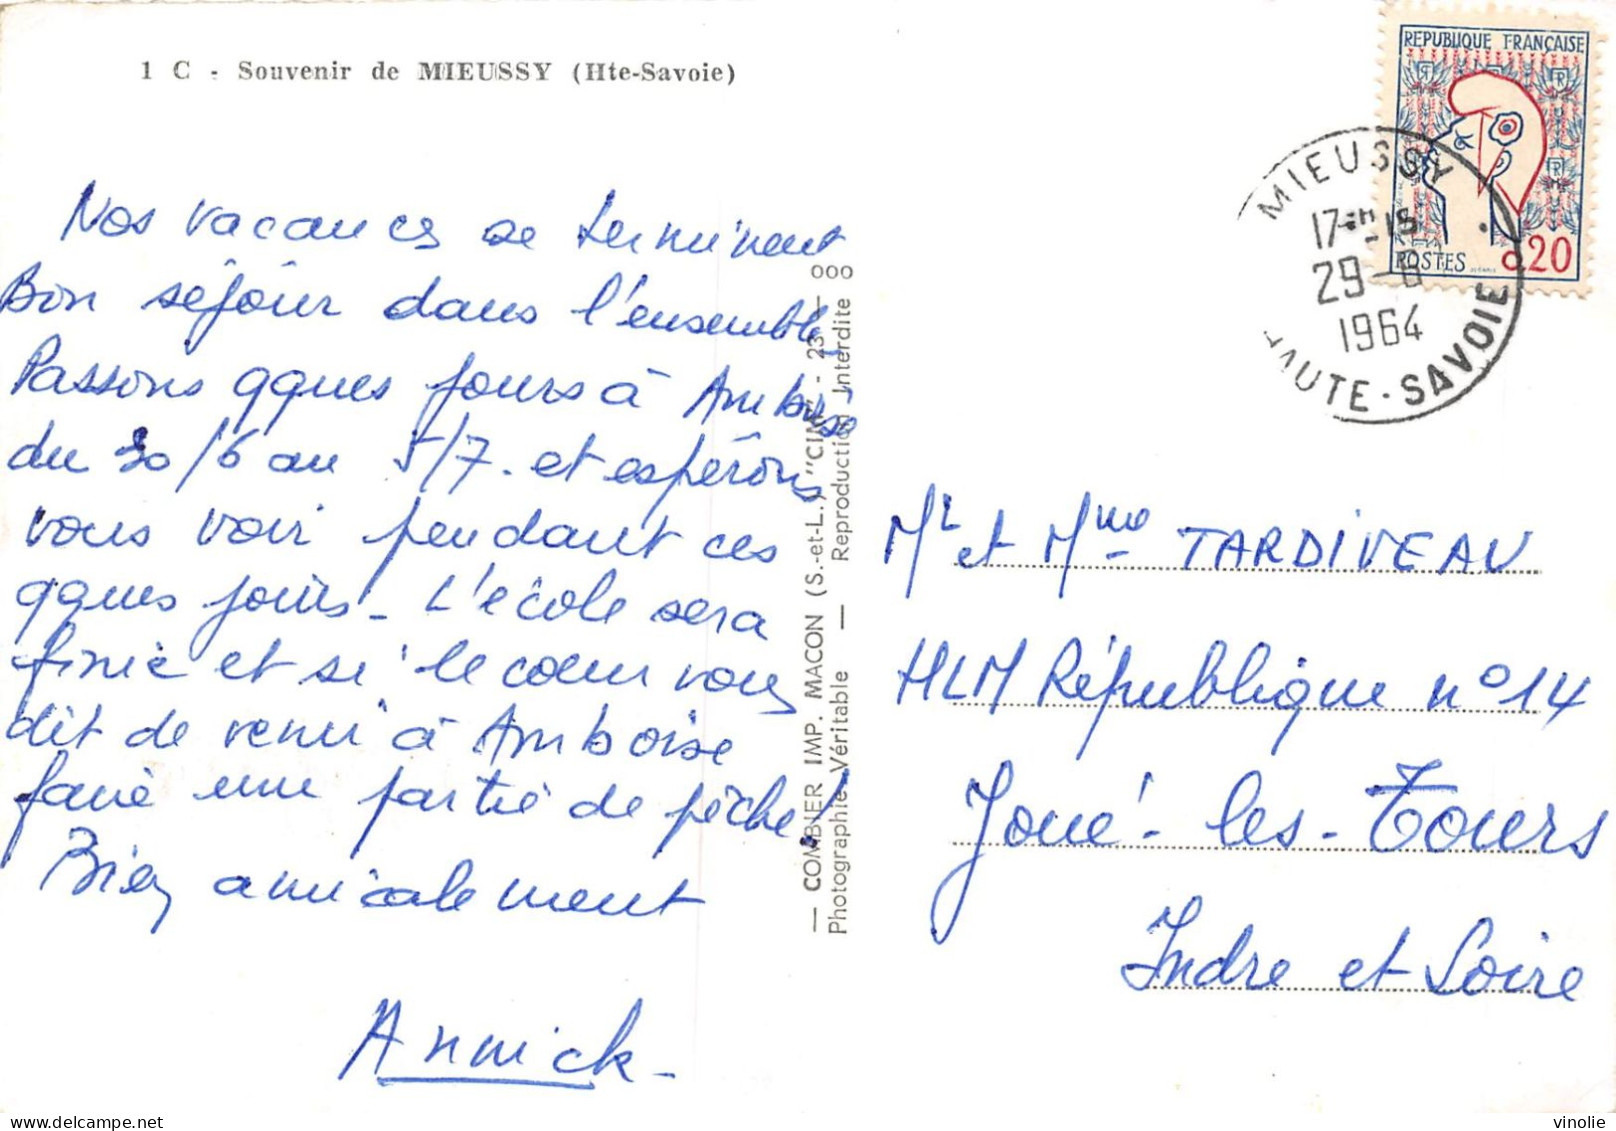 1 C - Souvenir de MIEUSSY (Hte-Savoie)
Nos vacances se terminent
Bon séjour dans l'ensemble
Passons qques jours à Amboise
du 30/6 au 5/7. et espérons
vous voir pendant ces
qques jours - L'école sera
finie et si le cœur vous
dit de venir à Amboise
faire une partie de pêche!
Bien amicalement
Annick -
— COMBIER IMP. MACON (S.-et-L.) "CIM" - 23 —
Photographie Véritable — Reproduction Interdite 000
REPUBLIQUE FRANÇAISE
POSTES 0,20
MIEUSSY
17H15
29-6
1964
HAUTE-SAVOIE
Mr et Mme TARDIVEAU
HLM République n° 14
Joué-les-Tours
Indre et Loire
vinolie